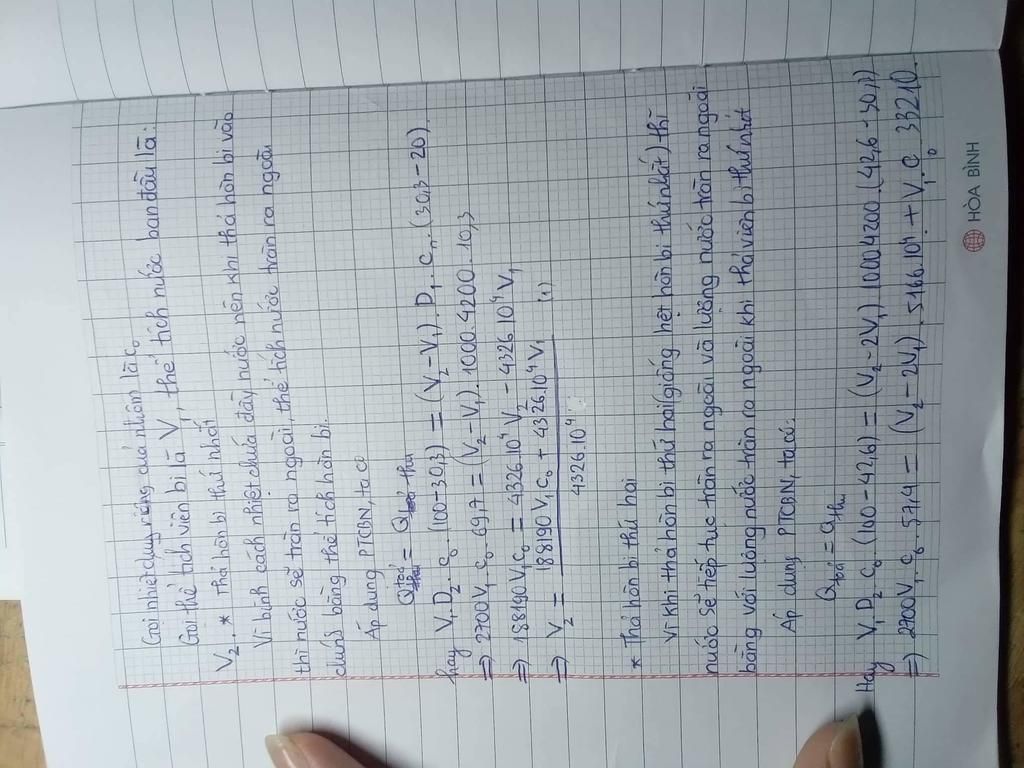 Gọi nhiệt dung riêng của nhôm là c₀
Gọi thể tích viên bi là V₁, thể tích nước ban đầu là:
V₂. * Thả hòn bi thứ nhất
Vì bình cách nhiệt chứa đầy nước nên khi thả hòn bi vào
thì nước sẽ tràn ra ngoài, thể tích nước tràn ra ngoài
đúng bằng thể tích hòn bi.
Áp dụng PTCBN, ta có
Qtoả = Qthu
hay V₁.D₂.c₀.(100-30,3) = (V₂-V₁).D₁.cₙ.(30,3-20).
=) 2700V₁.c₀.69,7 = (V₂-V₁).1000.4200.10,3
=) 188190V₁c₀ = 4326.10⁴V₂ - 4326.10⁴V₁
=) V₂ = 188190V₁c₀ + 4326.10⁴V₁ (1)
4326.10⁴
* Thả hòn bi thứ hai
Vì khi thả hòn bi thứ hai (giống hệt hòn bi thứ nhất) thì
nước sẽ tiếp tục tràn ra ngoài và lượng nước tràn ra ngoài
bằng với lượng nước tràn ra ngoài khi thả viên bi thứ nhất
Áp dụng PTCBN, ta có:
Qtoả = Qthu
Hay V₁D₂c₀(100-42,6) = (V₂-2V₁)1000.4200.(42,6-30,3)
=) 2700V₁.c₀.57,4 = (V₂-2V₁).5166.10⁴ + V₁.c₀.33210.
HÒA BÌNH